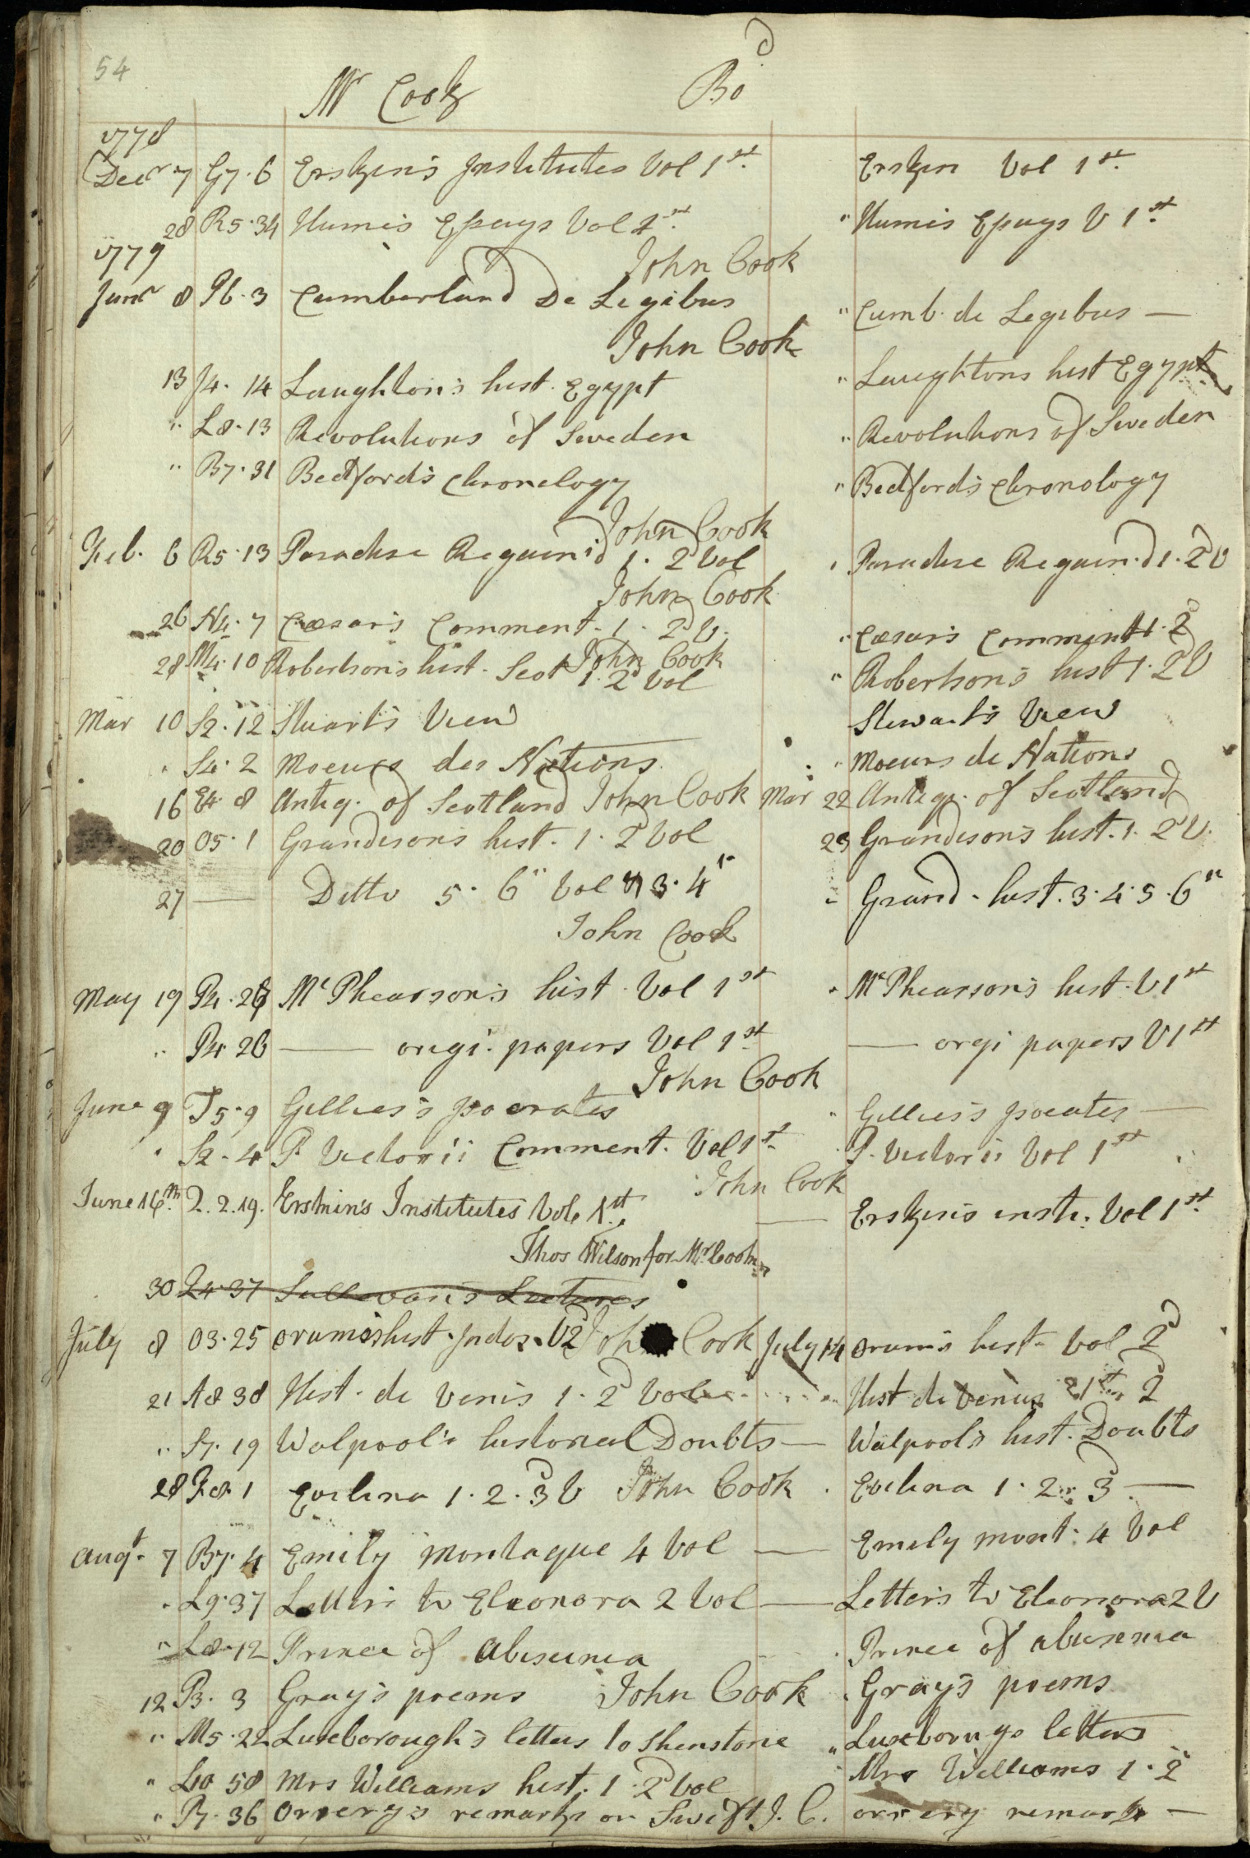 54
Mr Cook Bo d
1778
Decr 7 G7.6 Erskin's Institutes Vol 1st. Erskin Vol 1st.
28 R5.34 Humes Essays Vol 1st. " Humes Essays V 1st
1779 John Cook
Janr 8 P6.3 Cumberland De Legibus " Cumb. de Legibus —
John Cook
13 J4.14 Laughton's hist. Egypt " Laughtons hist Egypt
" L8.13 Revolutions of Sweden " Revolutions of Sweden
" B7.31 Bedford's Chronology " Bedford's Chronology
John Cook
Feb. 6 R5.13 Paradise Regain'd 1. 2d Vol " Paradise Regain'd 1. 2d V
John Cook
26 N4.7 Cæsar's Comment. 1. 2d V. " Cæsar's Comment 1. 2d
28 M4.10 Robertson's hist. Scot 1. 2d Vol John Cook " Robertson's hist 1. 2d V
Mar 10 S2.12 Stuart's View Stewart's View
" S4.2 Moeurs des Nations " Moeurs de Nations
16 E4.8 Antiq. of Scotland John Cook Mar 22 Antiq. of Scotland
20 O5.1 Grandison's hist. 1. 2d Vol 23 Grandison's hist. 1. 2d V.
27 — Ditto 5. 6" Vol 3. 4" " Grand. hist. 3.4.5.6"
John Cook
May 19 P4.26 McPhearson's hist. Vol 1st " McPhearson's hist. V 1st
" P4 26 — origi. papers Vol 1st — orgi papers V 1st
John Cook
June 9 T5.9 Gillies's Isocrates " Gillies's Isocates —
" S2.4 P. Victorii Comment. Vol 1st. " P. Victorii Vol 1st
John Cook
June 16th. 2.2.19. Erskin's Institutes Vol. 1st. — Erskin's insti. Vol 1st.
Thos Wilson for Mr Cook
30 Z4.37 Sullevan's Lectures
July 8 O3.25 Orum's hist. Indos. V 2d John Cook July 14 Orum's hist. Vol 2d
21 A8 38 Hist. de Venis 1. 2d Vol Hist de Venus 1st 2d
" S7.19 Walpool's historical Doubts — Walpool's hist. Doubts
28 F8.1 Evelina 1.2.3d V John Cook . Evelina 1.2.3d —
Augt. 7 B7.4 Emily Montague 4 Vol — Emely mont. 4 Vol
" L9.37 Letters to Eleonora 2 Vol — Letters to Eleonora 2 V
" L8.12 Prince of Abisinia . Prince of Abisinia
12 P3.3 Gray's poems John Cook . Gray's poems
" M5.22 Luxeborough's letters to Shenstone " Luxborougs letters
" L10 58 Mrs Williams hist. 1. 2d Vol Mrs Williams 1. 2d
" P7.36 Orrery's remarks on Swift J. C. orrery remarks —